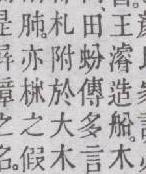 王濬造船木
田蚡傳多言
札附於大木
肺亦柹之假
是屏障之名